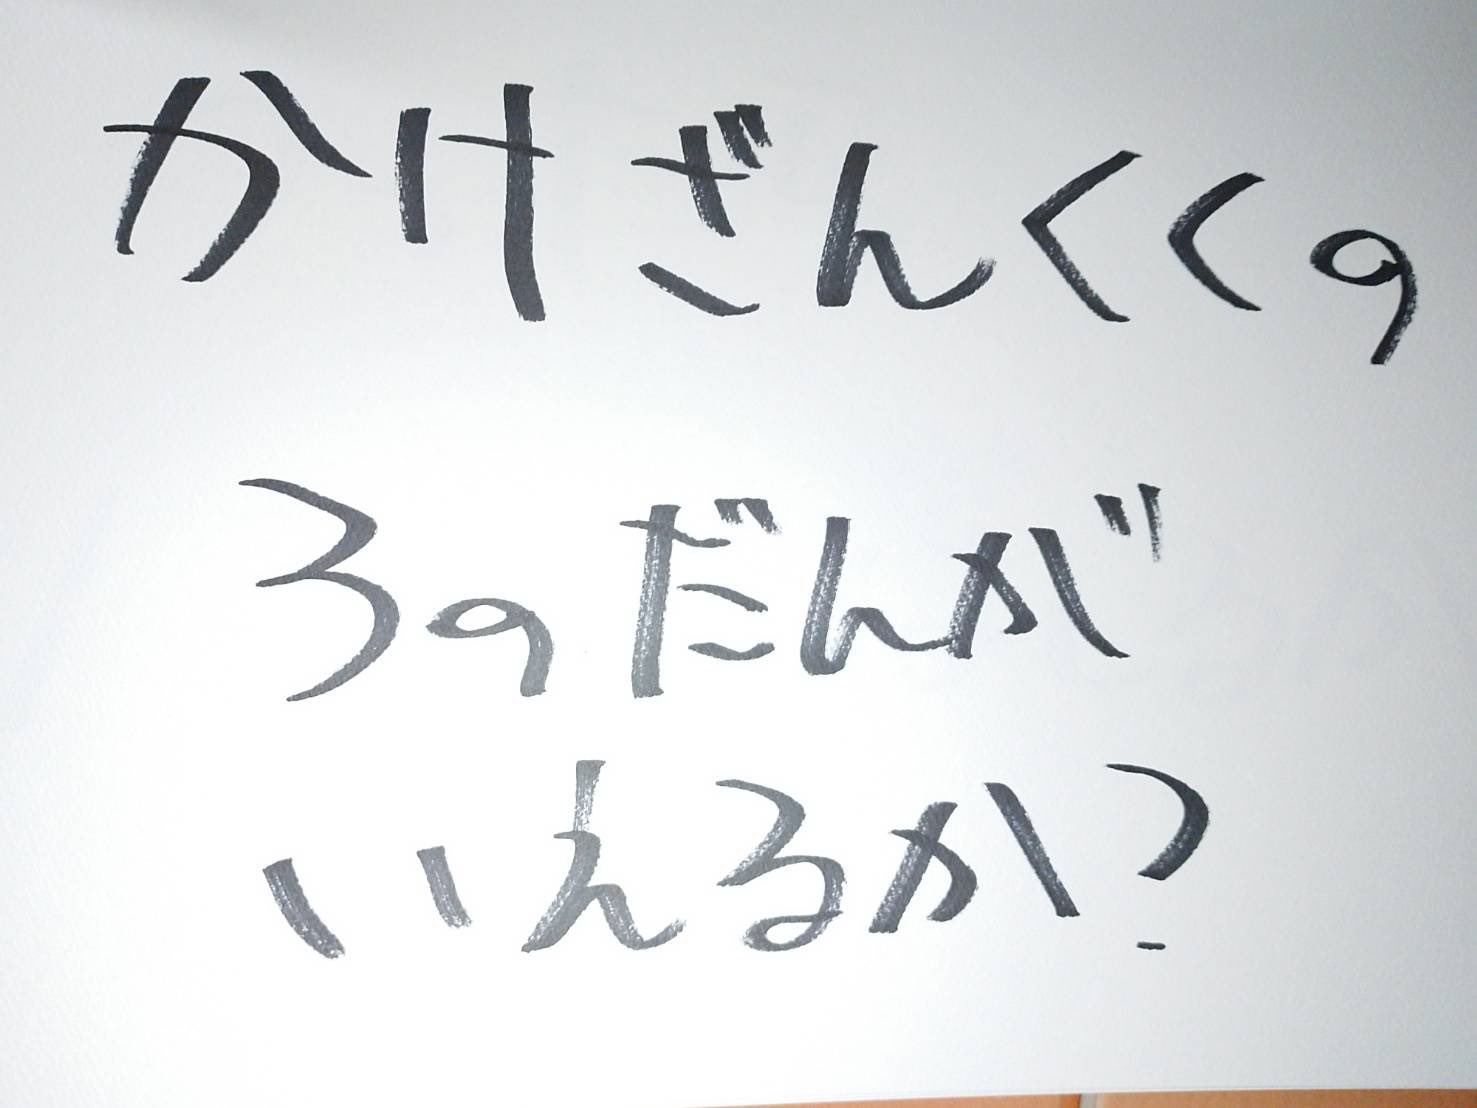 かけざんくくの
3のだんが
いえるか?